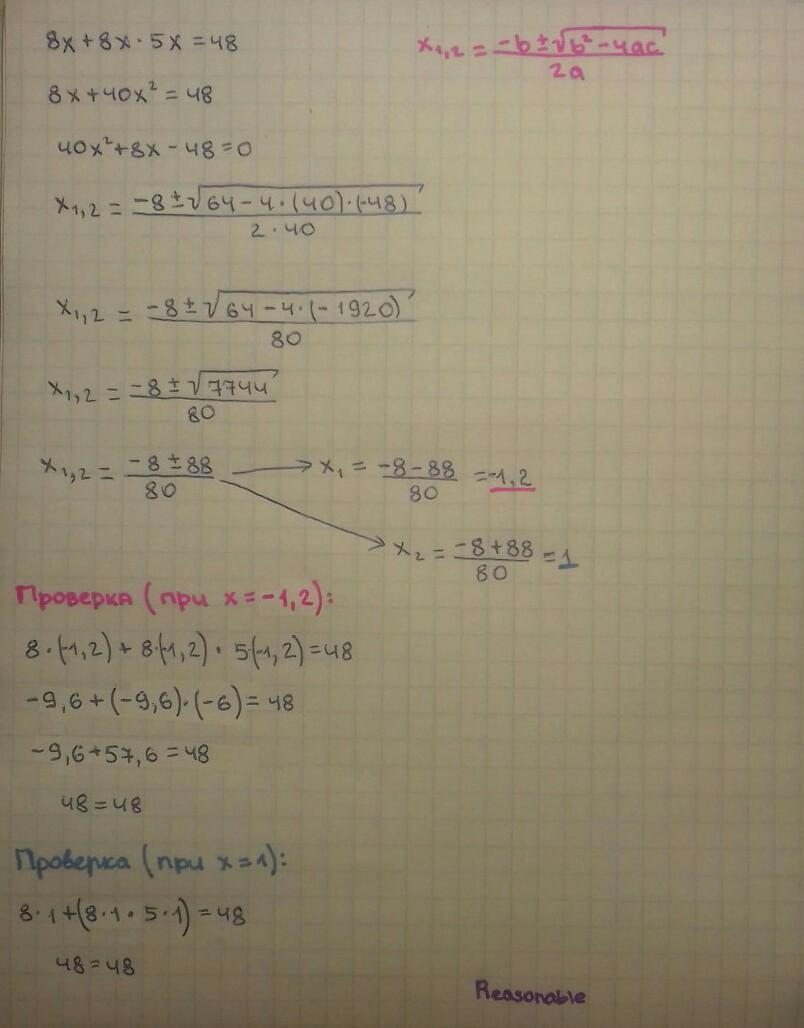 8x+8x·5x=48
x₁,₂ = (-b±√(b²-4ac))/(2a)
8x+40x²=48
40x²+8x-48=0
x₁,₂ = (-8±√(64-4·(40)·(-48)))/(2·40)
x₁,₂ = (-8±√(64-4·(-1920)))/80
x₁,₂ = (-8±√7744)/80
x₁,₂ = (-8±88)/80 → x₁ = (-8-88)/80 = -1,2
x₂ = (-8+88)/80 = 1
Проверка (при x=-1,2):
8·(-1,2)+8·(-1,2)·5·(-1,2)=48
-9,6+(-9,6)·(-6)=48
-9,6+57,6=48
48=48
Проверка (при x=1):
8·1+(8·1·5·1)=48
48=48
Reasonable